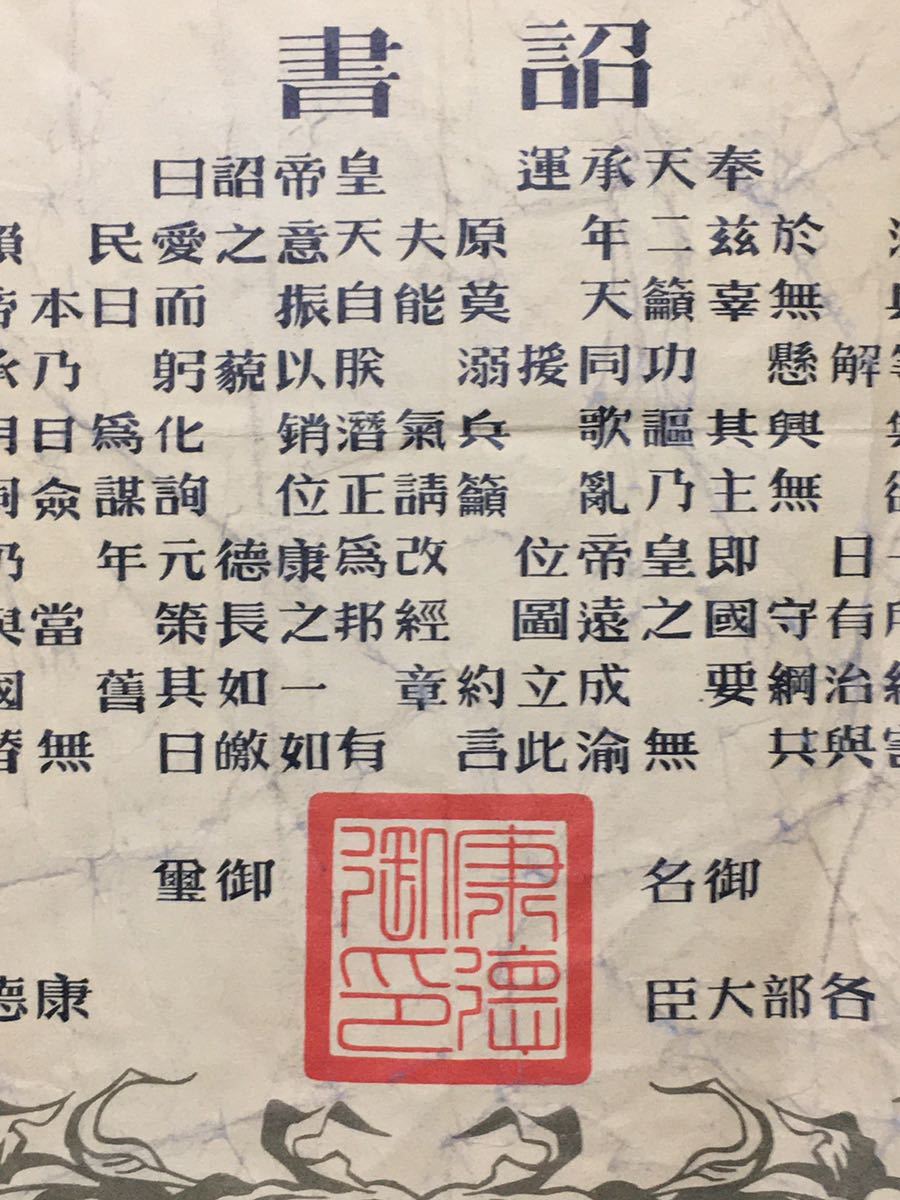 詔書
奉天承運 皇帝詔曰
於茲二年 原夫天意之愛民
無辜籲天 莫能自振 而日本
解懸 功同援溺 朕以藐躬 乃承
興其謳歌 兵氣潛銷 化爲日
無主乃亂 籲請正位 詢謀僉
日 即皇帝位 改爲康德元年
有守國之遠圖 經邦之長策 當
治綱要 成立約章 一如其舊
與共 無渝此言 有如皦日 無
御名
康德御印
御璽
各部大臣
康德